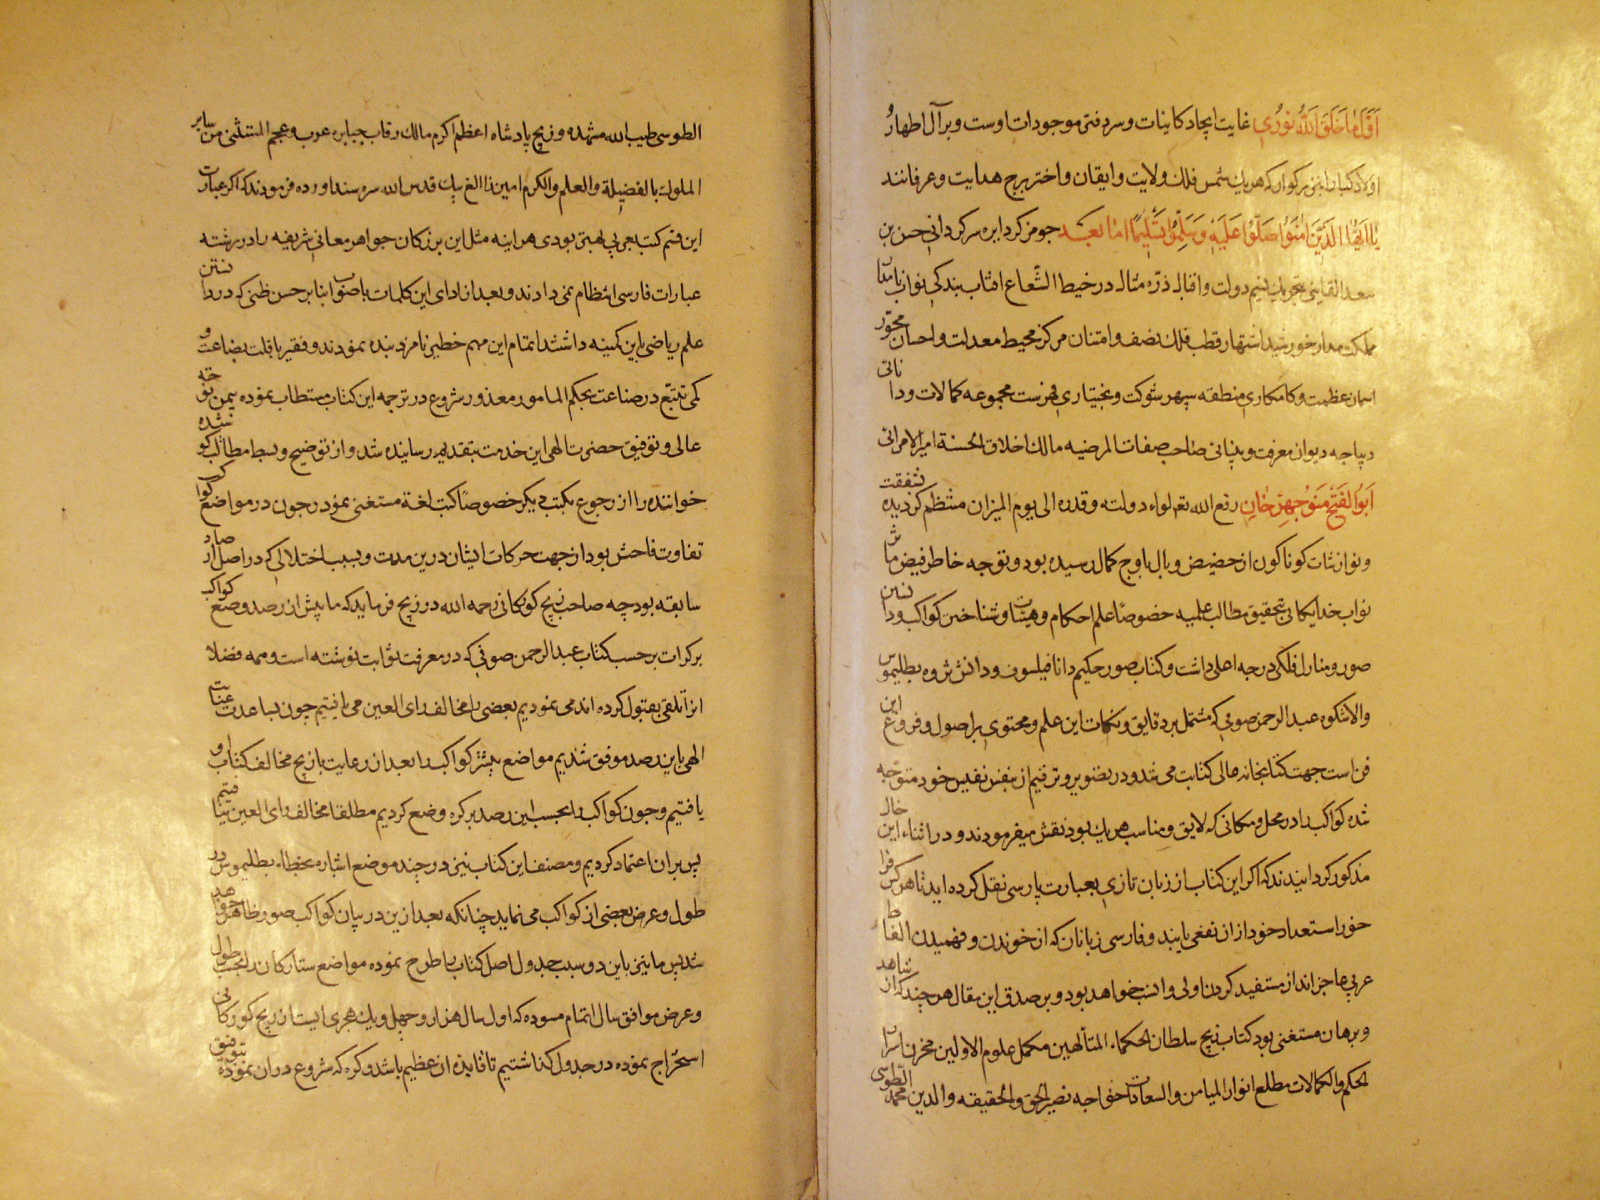 اول ما خلق الله نوری غایت ایجاد کاینات و سر دفتر موجودات اوست و بر آل اطهار و
اولاد کبار این بزرکوار که هر یک شمس فلک ولایت و ایقان و اختر برج هدایت و عرفانند
یا ایها الذین امنوا صلوا علیه و سلموا تسلیما اما بعد جو مرکردابره سرکردانی حسن بن
سعد القاینی بتحریک نسیم دولت و اقبال ذره مثال در خیط الشعاع افتاب بندکی نواب نامدار
مملکت مدار خورشید اشتهار قطب فلک نصفو امتنان مرکز محیط معدلت و احسان محور
اسمان عظمت و کامکاری منطقه سپهر شوکت و بختیاری فهرست مجموعه کمالات
دیباجه دیوان معرفت صاحب صفات المرضیه مالک اخلاق الحسنة امیر الامرائی
ابو الفتح منوجهر خان رفع الله تع لواء دولته و قدره الی یوم المیزان منتظم کردیده
و نوازشات کوناکون از حضیض وبال باوج کمال رسیده بود و توجه خاطر فیض
نواب خدایکانی بتحقیق مطالب علمیه خصوصا علم احکام و هیئات و شناختن کواکب و دانستن
صور و منازل فلکی درجه اعلی داشت و کتاب صور حکیم دانا فیلسوف و دانش پژوه بطلیموس
والاشکوه عبد الرحمن صوفی که مشتمل بر دقایق و نکات این علم و محتوی بر اصول و فروع این
فن است جهت کتابخانه عالی کتابت می شد و در تصویر و ترقیم از بنفس نفیس خود متوجه
شده کواکب را در محل و مکانی که لایق و مناسب هر یک بود نقش میفرمودند و در اثناء این حال
مذکور کردانیدند که اکر این کتاب از زبان تازی بعبارت پارسی نقل کرده اید تا هر کس فرا
خور استعداد خود از ان نفعی یابند و فارسی زبانان که از خوندن و فهمیدن الفاظ
عربی عاجز اند از مستفید کردن اولی و انسب خواهد بود و بر صدق این مقال هر چند که از شاهد
و برهان مستغنی بود کتاب زیج سلطان الحکماء المتألهین مکمل علوم الاولین مخزن اسرار
الحکم و الکمالات مطلع انوار المیامن و السعادات خواجه نصیر الحق و الحقیقه و الدین محمد الطوسی
الطوسی طیب الله مشهده و زیج پادشاه اعظم اکرم مالک رقاب جبابره عرب و عجم المستثنی من سایر
الملوک بالفضیلة و العلم و الکرم امین ذا الغ بیک قدس الله سره سند اورده فرمودند که اکر عبارت
این قسم کتب عربی بهتر بودی هر اینه مثل این بزرکان جواهر معانی شریفه را در رشته
عبارات فارسی انتظام نمی دادند و بعد از ادای این کلمات باصواب بنا بر حسن ظنی که در دانستن
علم ریاضی باین کمینه داشتند اتمام این مهم خطیر نامزد بنده نمودند و فقیر با قلت بضاعت و
کمی تتبع در صناعت بحکم المامور معذور شروع در ترجمه این کتاب مستطاب نموده بیمن توجه
عالی و توفیق حضرت الهی این خدمت بتقدیم رسانیده شد و از توضیح و بسط مطالب
خواننده را از رجوع بکتب دیکر خصوصا کتب لغة مستغنی نمود و چون در مواضع کواکب
تفاوت فاحش بود از جهت حرکات ایشان درین مدت و بسبب اختلالی که در اصل ارصاد
سابقه بود چه صاحب زیج کورکانی رحمه الله در زیج فرماید که ما پیش از رصد وضع کواکب
بر کرات بر حسب کتاب عبد الرحمن صوفی که در معرفت ثوابت نوشته است و همه فضلا
انرا تلقی بقبول کرده اند می نمودیم بعضی را مخالف رای العین می یافتیم چون بمساعدت عنایت
الهی باین رصد موفق شدیم مواضع بیشتر کواکب را بعد از رعایت تاریخ مخالف کتاب او
یافتیم و جون کواکب را بحسب این رصد بر کره وضع کردیم مطلقا مخالف رای العین نیافتیم
پس بران اعتماد کردیم و مصنف این کتاب نیز در چند موضع اشاره بخطاء بطلیموس در
طول و عرض بعضی از کواکب می نماید چنانکه بعد ازین در بیان کواکب صور ظاهر خواهد
شد پس ما نیز باین دو سبب جدول اصل کتاب را طرح نموده مواضع ستارکان را بحسب طول
و عرض موافق سال اتمام مسوده که اول سال هزار و چهل و یک هجری است از زیج کورکانی
استخراج نموده در جدول کذاشتیم تا فایده ان عظیم باشد و کره که شروع دران نموده